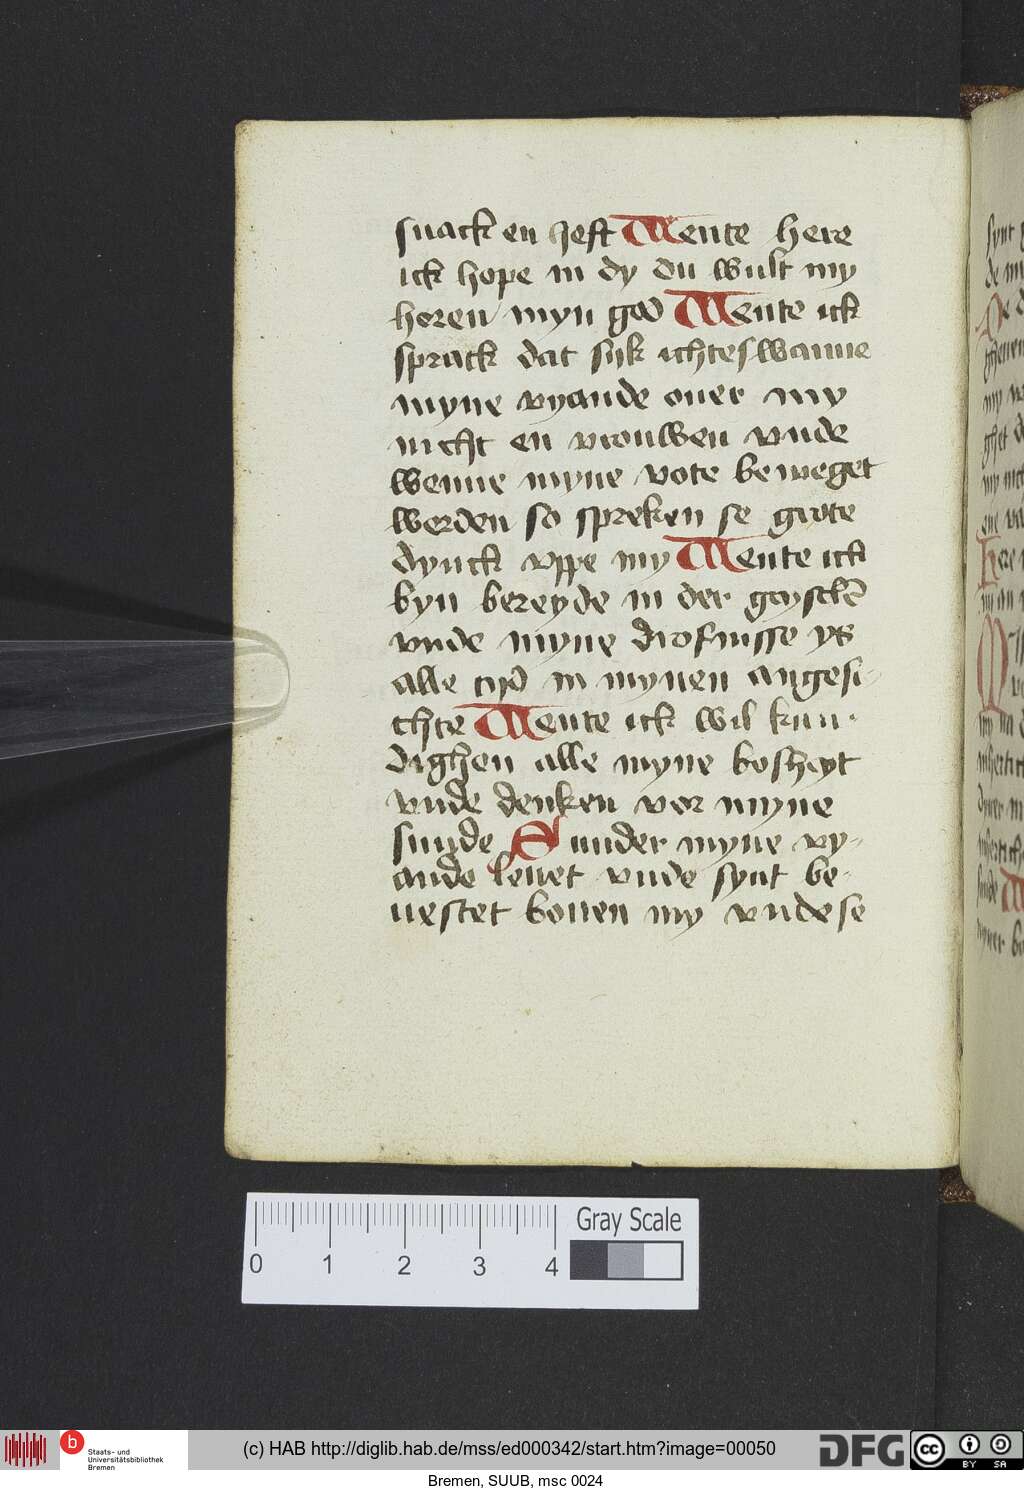 snack en heft Wente here
ick hope in dy du wult my
horen myn god Wente ick
sprack dat syk ichteswanne
myne vyande ouer my
nicht en vrouwen vnde
wenne myne vote beweget
werden so spreken se grote
dynck vppe my Wente ick
byn bereyde in der geyschelē
vnde myne drofnisse ys
alle tyd in mynen angesi-
chte Wente ick wil kun-
dighen alle myne bosheyt
vnde denken vor myne
sunde Sunder myne vy-
ande leuet vnde synt be-
uestet bouen my vnde se
synt
de my
my
ene
Here
my na
sunde
0 1 2 3 4
Gray Scale
b Staats- und
Universitätsbibliothek
Bremen
(c) HAB http://diglib.hab.de/mss/ed000342/start.htm?image=00050
DFG
cc BY SA
Bremen, SUUB, msc 0024